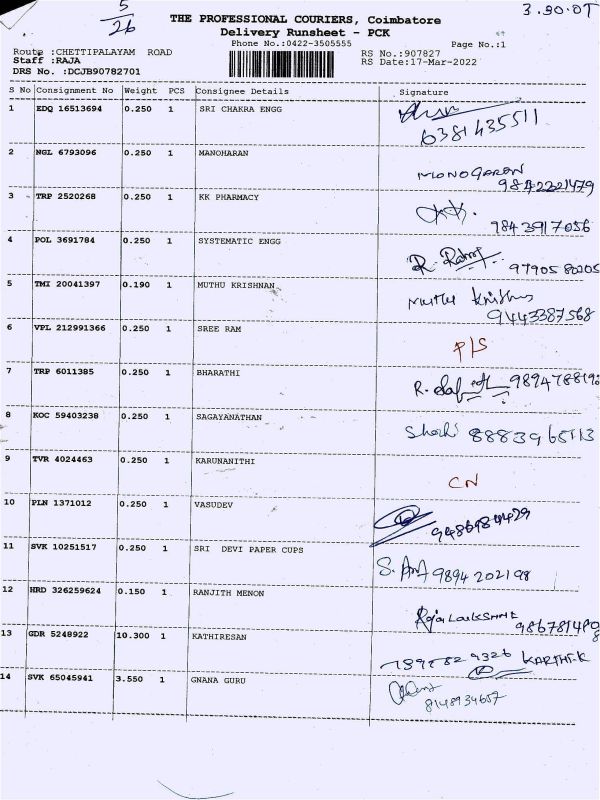 5
26
3.30.07
THE PROFESSIONAL COURIERS, Coimbatore
Delivery Runsheet - PCK
Phone No.:0422-3505555
Page No.:1
Route :CHETTIPALAYAM ROAD
RS No.:907827
Staff :RAJA
RS Date:17-Mar-2022
DRS No. :DCJB90782701
S No Consignment No Weight PCS Consignee Details Signature
1 EDQ 16513694 0.250 1 SRI CHAKRA ENGG
6381435511
2 NGL 6793096 0.250 1 MANOHARAN
MANOGARAN
9842221479
3 TRP 2520268 0.250 1 KK PHARMACY
9843917056
4 POL 3691784 0.250 1 SYSTEMATIC ENGG
9790580205
5 TMI 20041397 0.190 1 MUTHU KRISHNAN
Muthu Krishnan
9443387568
6 VPL 212991366 0.250 1 SREE RAM
P/S
7 TRP 6011385 0.250 1 BHARATHI
8 KOC 59403238 0.250 1 SAGAYANATHAN
Shashi 8883965113
9 TVR 4024463 0.250 1 KARUNANITHI
CN
10 PLN 1371012 0.250 1 VASUDEV
11 SVK 10251517 0.250 1 SRI DEVI PAPER CUPS
9894202198
12 HRD 326259624 0.150 1 RANJITH MENON
13 GDR 5248922 10.300 1 KATHIRESAN
KARTHIK
14 SVK 65045941 3.550 1 GNANA GURU
8148934657